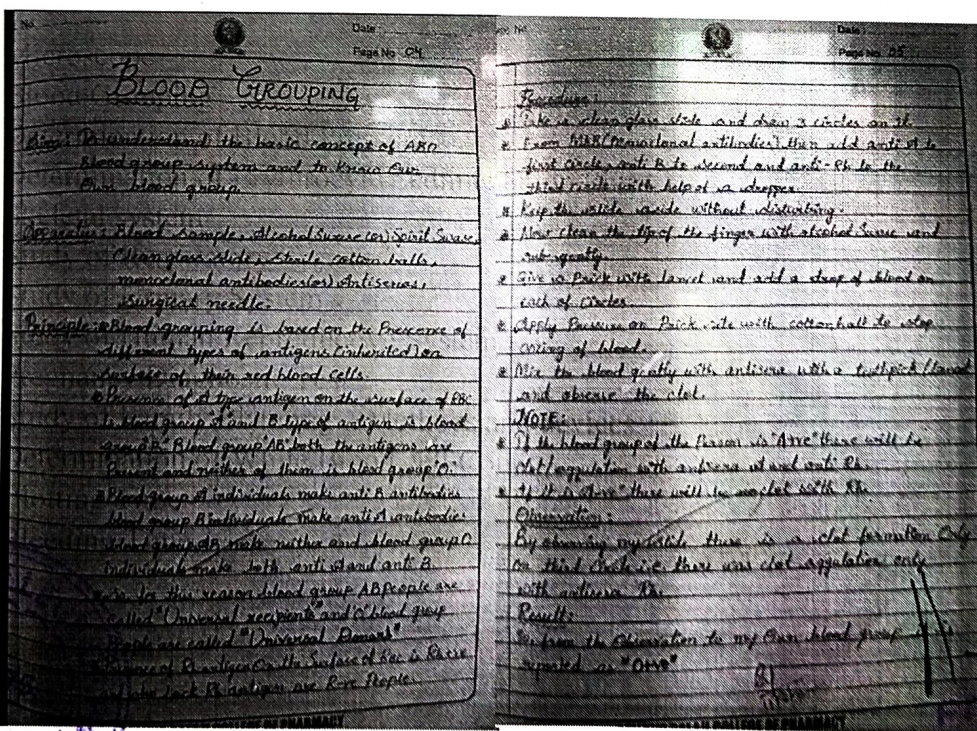 No.
Date
Page No. 04
BLOOD GROUPING
Aim: To understand the basic concept of ABO
Blood group system and to Know Our
Own blood group.
Apparatus: Blood Sample, Alcohol Swase (or) Spirit Swase,
Clean glass slide, Sterile cotton balls,
monoclonal antibodies (or) Antiseras,
surgical needle.
Principle: Blood grouping is based on the Presence of
different types of antigens (inherited) on
surface of their red blood cells.
Presence of A type antigen on the surface of RBC
is blood group "A" and B type of antigen is blood
group "B" Blood group "AB" both the antigens are
Present and neither of them is blood group "O."
Blood group A individuals make anti B antibodies
blood group B individuals make anti A antibodies
blood group AB make neither and blood group O
individuals make both anti A and anti B.
So for this reason blood group AB People are
called "Universal recipients" and O blood group
People are called "Universal Donars"
of Rh antigen On the Surface of RBC is Rh+ve
and who lack Rh antigen are R-ve People.
No.
Date :
Page No. 05
Procedure:
Take a clean glass slide and draw 3 circles on it.
From (monoclonal antibodies) then add anti A to
first circle, anti B to second and anti-Rh to the
third circle with help of a dropper.
Keep the slide aside without disturbing.
Now clean the tip of the finger with alcohol Swase and
Give a Prick with lancet and add a drop of blood on
each of circles.
Apply Pressure on Prick site with cotton ball to stop
oozing of blood.
Mix the blood gently with antisera with a toothpick/
and observe the clot.
NOTE:
If the blood group of the Person is "A+ve" there will be
clot/aggulation with antisera A and anti Rh.
If it is "A-ve" there will be no clot with Rh.
Observation:
By observing my slide there is a clot formation Only
on third Circle i.e. there was clot aggulation only
with antisera Rh.
Result:
So from the Observation to my Own blood group is
reported as "O+ve"
COLLEGE OF PHARMACY
COLLEGE OF PHARMACY